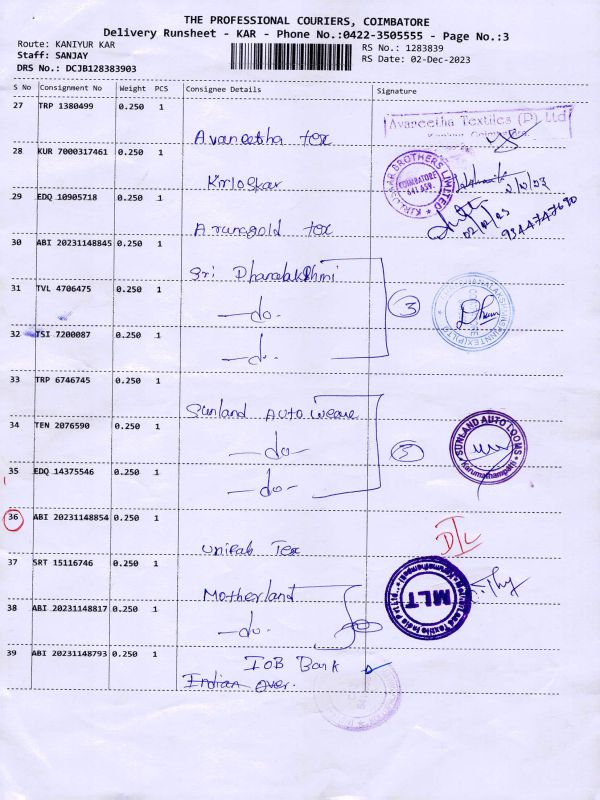 THE PROFESSIONAL COURIERS, COIMBATORE
Delivery Runsheet - KAR - Phone No.:0422-3505555 - Page No.:3
Route: KANIYUR KAR
RS No.: 1283839
Staff: SANJAY
RS Date: 02-Dec-2023
DRS No.: DCJB128383903
S No Consignment No Weight PCS Consignee Details Signature
27 TRP 1380499 0.250 1
Avaneetha tex
Avaneetha Textiles (P) Ltd
28 KUR 7000317461 0.250 1
Kirloskar
KIRLOSKAR BROTHERS LIMITED
COIMBATORE
641 659.
29 EDQ 10905718 0.250 1
Arungold tex
02/12/23
9344747690
30 ABI 20231148845 0.250 1
Sri Dhanalakshmi
31 TVL 4706475 0.250 1
-do-
3
32 TSI 7200087 0.250 1
-do-
33 TRP 6746745 0.250 1
Sunland Auto weave
34 TEN 2076590 0.250 1
-do-
SUNLAND AUTO LOOMS
Karumathampatti
35 EDQ 14375546 0.250 1
-do-
36 ABI 20231148854 0.250 1
Unifab Tex
D/L
37 SRT 15116746 0.250 1
Motherland
MLT
38 ABI 20231148817 0.250 1
-do-
39 ABI 20231148793 0.250 1
IOB Bank
Indian Over.